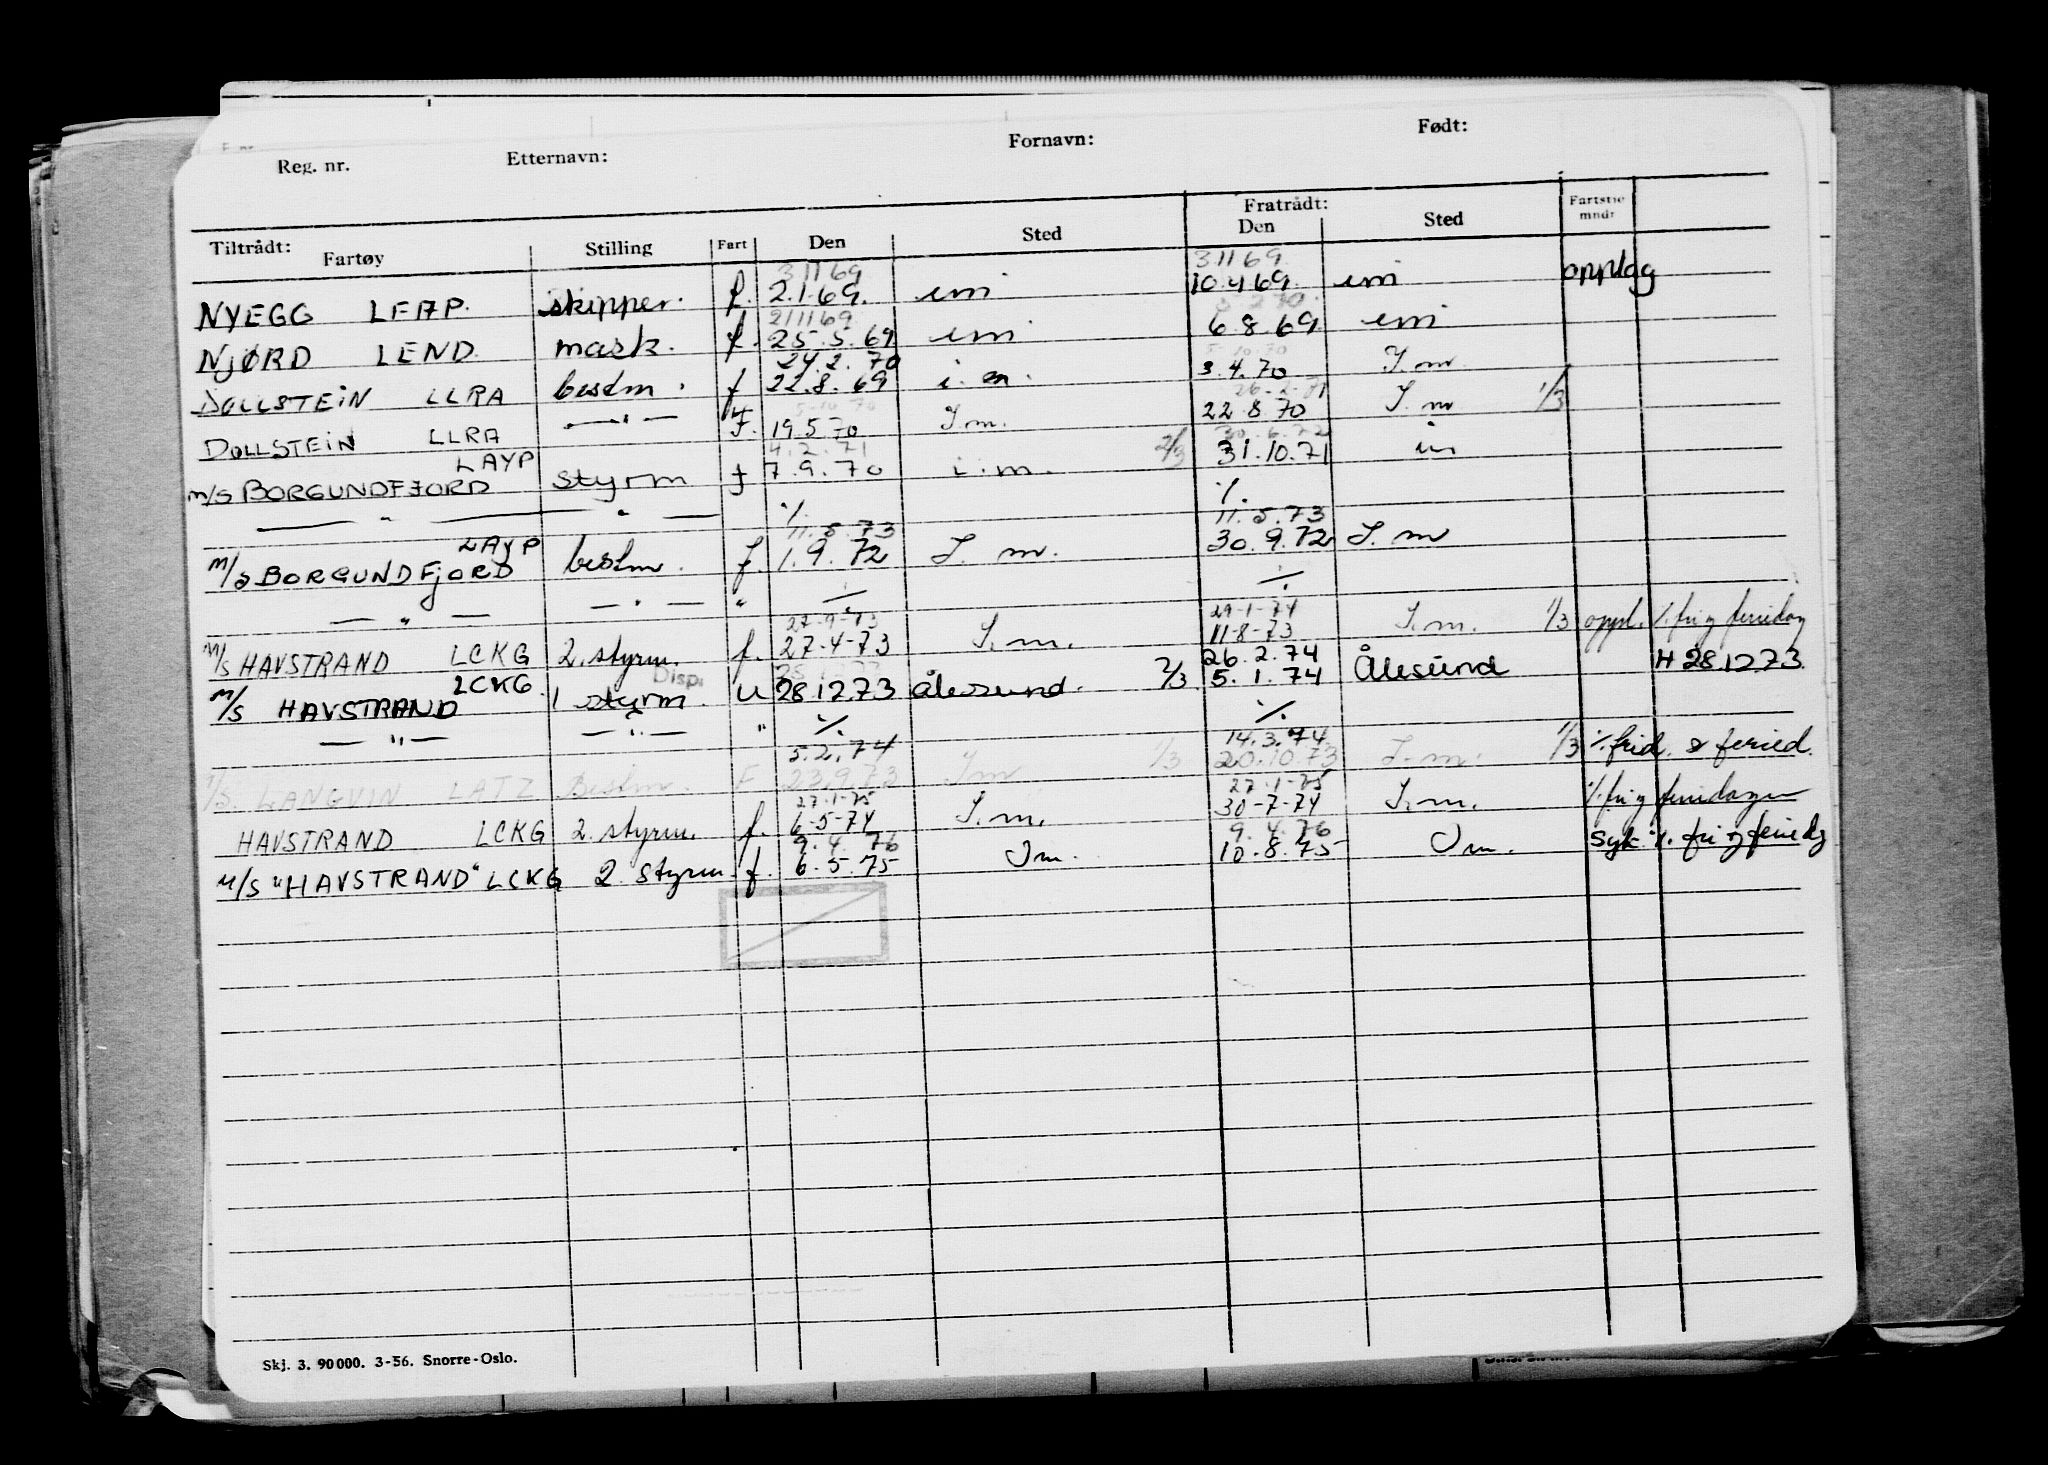 Reg. nr. Etternavn: Fornavn: Født:
Tiltrådt: Fratrådt:
Fartøy Stilling Fart Den Sted Den Sted Fartstid mndr
31169 31169
NYEGG LEAP. skipper. f. 2.1.69. im 10.4.69. im opplag
211169
NJØRD LEND. mask. f. 25.5.69 im 6.8.69 im
24.2.70 5.10.70
DOLLSTEIN LLRA bestm. f 22.8.69 i.m. 3.4.70 I.m.
5.10.70 26-2-71
DOLLSTEIN LLRA —"— F. 19.5.70 I.m. 22.8.70 I.m 1/3
LAYP 4.2.71 30.6.72
M/S BORGUNDFJORD styrm f 7.9.70 i.m. 2/3 31.10.71 im
— " — " — ./. ./.
LAYP 11.5.73 11.5.73
M/S BORGUNDFJORD bestm. f. 1.9.72 I.m. 30.9.72 I.m
— " — — " — " ./. ./.
27-9-73 29-1-74
M/S HAVSTRAND LCKG 2. styrm. f. 27-4-73 I.m. 11-8-73 I.m. 1/3 oppl. ./. fri og feriedag
LCKG. Disp. 26.2.74
M/S HAVSTRAND 1 styrm. U 28.12.73 Ålesund. 2/3 5.1.74 Ålesund H 28.12.73
— " — — " — " ./. ./.
5.2.74 14.3.74
M/S. LANGVIN LATZ Bestm. F 23.9.73 Im 1/3 20.10.73 I.m. 1/3 ./. frid. & feried.
27-1-75 27-1-75
HAVSTRAND LCKG 2. styrm. f. 6-5-74 I.m. 30-7-74 I.m. ./. fri og feriedager
9.4.76 9.4.76
M/S "HAVSTRAND" LCKG 2. styrm. f. 6.5.75 Im. 10.8.75 Im. Syk ./. fri og feriedg
Skj. 3. 90000. 3-56. Snorre-Oslo.